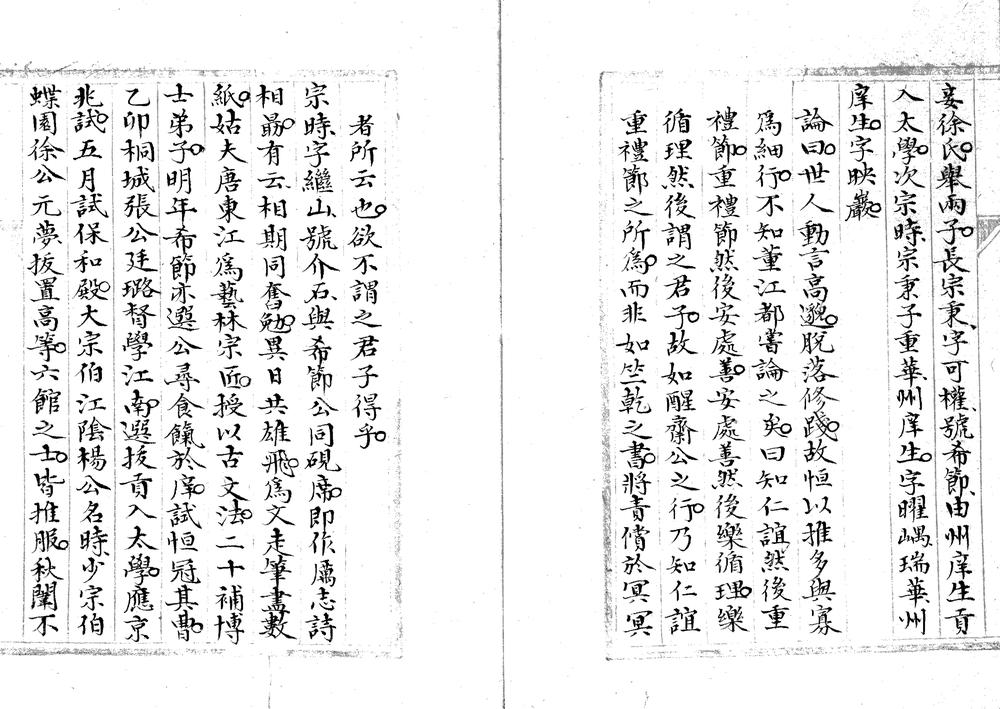 妾徐氏舉兩子長宗秉字可權號希節由州庠生貢
入太學次宗時宗秉子重華州庠生字曜嵎瑞華州
庠生字映巖
論曰世人動言高邈脫落修踐故恒以推多與寡
爲細行不知董江都嘗論之矣曰知仁誼然後重
禮節重禮節然後安處善安處善然後樂循理樂
循理然後謂之君子故如醒齋公之行乃知仁誼
重禮節之所爲而非如竺乾之書將責償於冥冥
者所云也欲不謂之君子得乎
宗時字繼山號介石與希節公同硯席即作厲志詩
相勗有云相期同奮勉異日共雄飛爲文走筆盡數
紙姑夫唐東江爲藝林宗匠授以古文法二十補博
士弟子明年希節亦選公尋食餼於庠試恒冠其曹
乙卯桐城張公廷璐督學江南選拔貢入太學應京
兆試五月試保和殿大宗伯江陰楊公名時少宗伯
蝶園徐公元夢拔置高等六館之士皆推服秋闈不